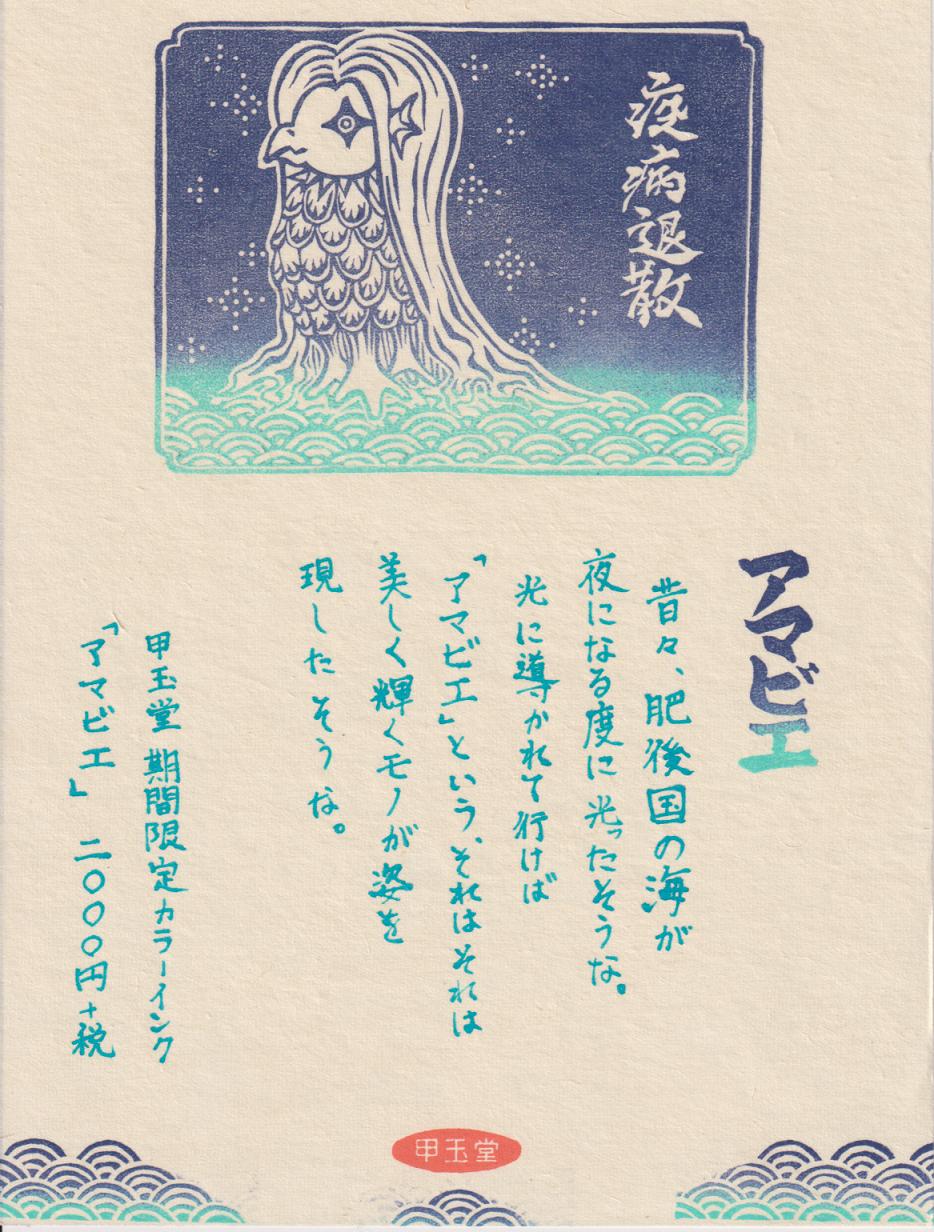 疫病退散
アマビエ
昔々、肥後国の海が
夜になる度に光ったそうな。
光に導かれて行けば
「アマビエ」という、それはそれは
美しく輝くモノが姿を
現したそうな。
甲玉堂 期間限定カラーインク
「アマビエ」 二〇〇〇円+税
甲玉堂